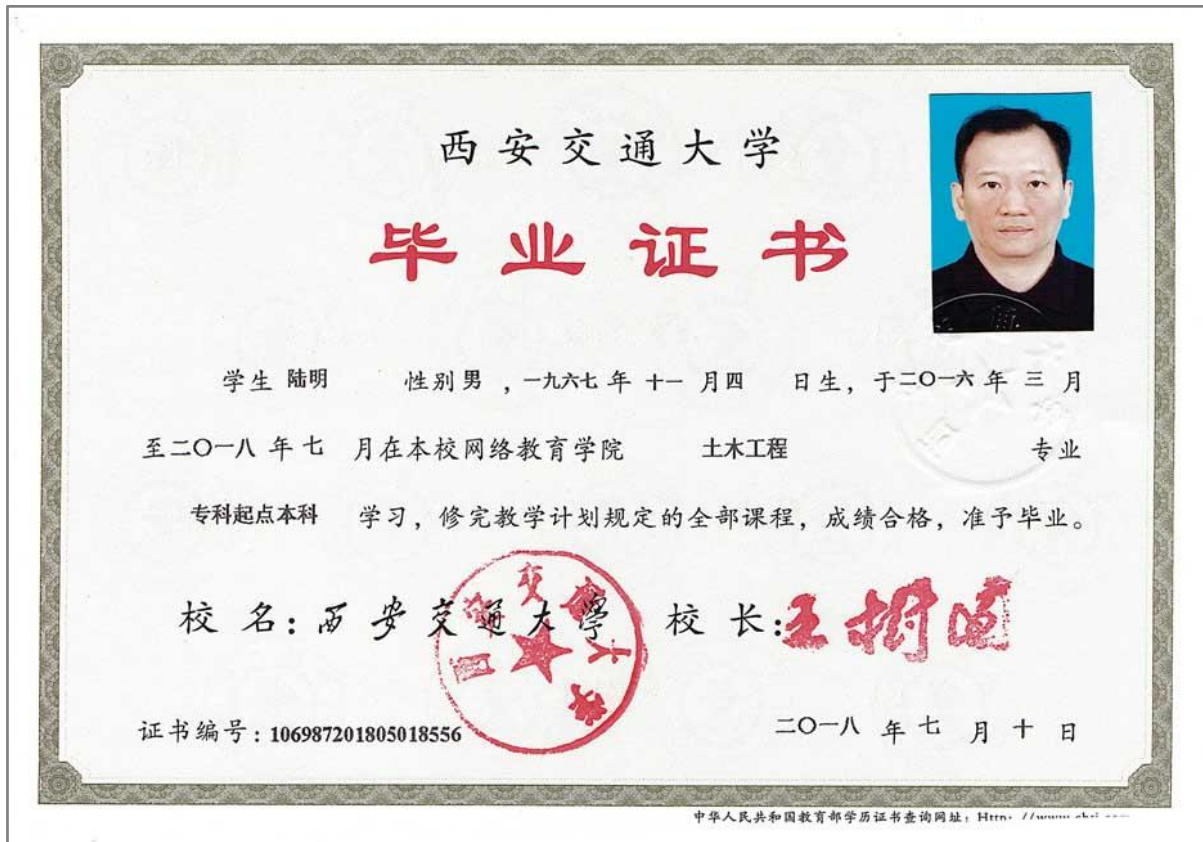 西安交通大学
毕业证书
学生 陆明 性别 男 ，一九六七 年 十一 月 四 日生，于二〇一六 年 三 月
至二〇一八 年 七 月在本校网络教育学院 土木工程 专业
专科起点本科 学习，修完教学计划规定的全部课程，成绩合格，准予毕业。
校 名：西安交通大学 校 长：王树国
西安交通大学
证书编号：106987201805018556 二〇一八 年 七 月 十 日
中华人民共和国教育部学历证书查询网址：Http: //www.chsi.com